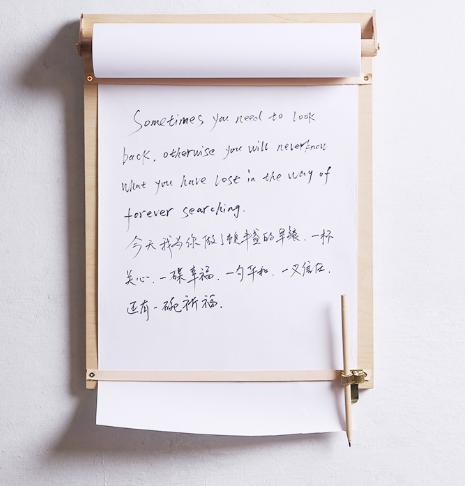 Sometimes you need to look
back, otherwise you will never know
what you have lost in the way of
forever searching.
今天我为你做了顿丰盛的早餐，一杯
关心，一碟幸福，一勺平和，一叉信任，
还有一碗祈福。